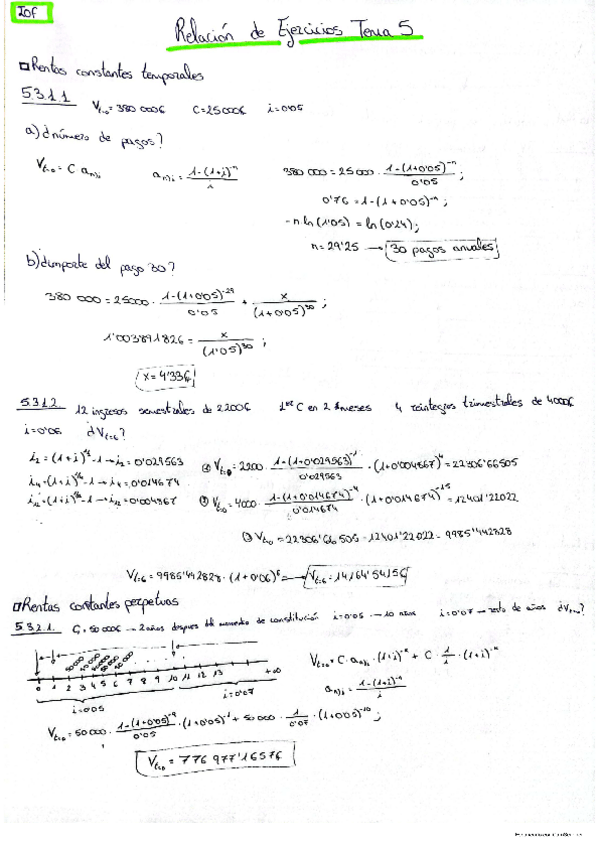 IOF
Relación de Ejercicios Tema 5
Rentas constantes temporales
5.3.1.1 V_{t=0} = 380 000€ C = 25 000€ i = 0'05
a) ¿número de pagos?
V_{t=0} = C a_{n⌉i} a_{n⌉i} = (1-(1+i)^{-n})/i 380 000 = 25 000 · (1-(1+0'05)^{-n})/0'05 ;
0'76 = 1-(1+0'05)^{-n} ;
-n ln(1'05) = ln(0'24) ;
n = 29'25 → 30 pagos anuales
b) ¿importe del pago 30?
380 000 = 25000 · (1-(1+0'05)^{-29})/0'05 + x/(1+0'05)^{30} ;
1'003891826 = x/(1'05)^{30} ;
x = 4'336€
5.3.1.2 12 ingresos semestrales de 2200€ 1er C en 2 meses 4 reintegros trimestrales de 4000€
i = 0'06 ¿V_{t=6}?
i_2 = (1+i)^{1/2} - 1 → i_2 = 0'029563
i_4 = (1+i)^{1/4} - 1 → i_4 = 0'014674
i_{12} = (1+i)^{1/12} - 1 → i_{12} = 0'004867
V_{t=0} = 2200 · /0'029563 · (1+0'004867)^4 = 22306'66505
V_{t=0} = 4000 · (1-(1+0'014674)^{-4})/0'014674 · (1+0'014674)^{-15} = 12401'22022
V_{t=0} = 22306'66505 - 12401'22022 = 9985'442828
V_{t=6} = 9985'442828 · (1+0'06)^6 = V_{t=6} = 14164'5415€
Rentas constantes perpetuas
5.3.2.1 50 000€ → 2 años después del momento de constitución i = 0'05 → 10 años i = 0'07 → resto de años ¿V_{t=0}?
0 1 2 3 4 5 6 7 8 9 10 11 12 13 +∞
i = 0'05 i = 0'07
V_{t=0} = C · a_{n⌉i} · (1+i)^{-n} + C · 1/i · (1+i)^{-n}
a_{n⌉i} = (1-(1+i)^{-n})/i
V_{t=0} = 50 000 · (1-(1+0'05)^{-9})/0'05 · (1+0'05)^{-1} + 50 000 · 1/0'07 · (1+0'05)^{-10} ;
V_{t=0} = 776 977'16576